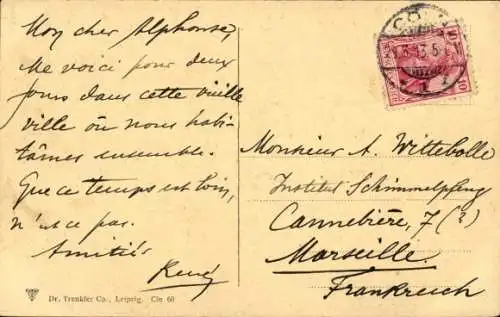 Mon cher Alphonse,
Me voici pour deux
jours dans cette vieille
ville où nous habi-
tâmes ensemble.
Que ce temps est loin,
n'est ce pas.
Amitiés
René
Dr. Trenkler Co., Leipzig. Cln 60
CÖLN
10
Monsieur A. Wittebolle
Institut Schimmelpfeng
Cannebière, 7 (?)
Marseille.
Frankreich